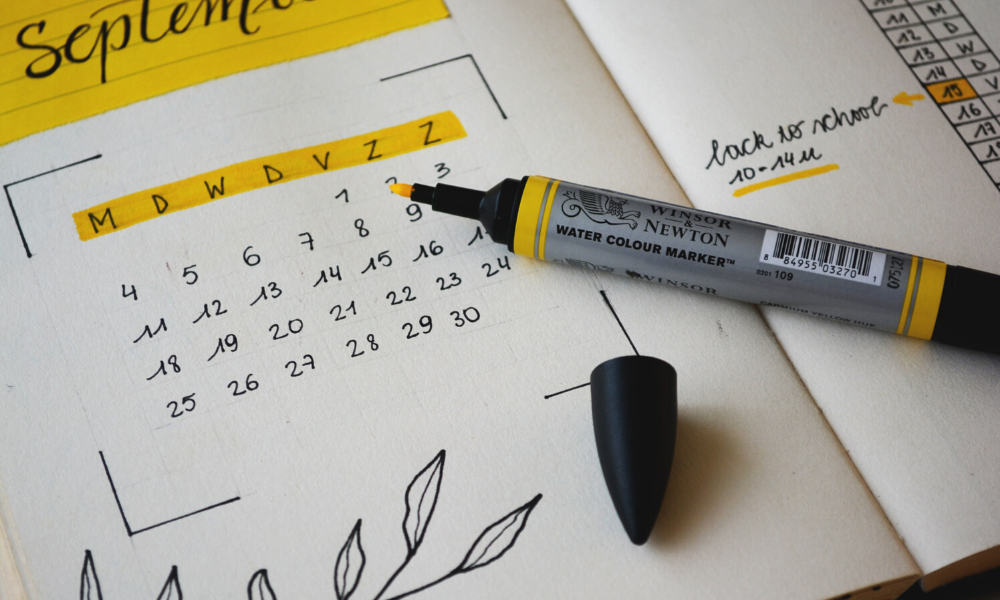 Septem
M D W D V Z Z
1 2 3
4 5 6 7 8 9
11 12 13 14 15 16
18 19 20 21 22 23 24
25 26 27 28 29 30
11 M
12 D
13 W
14 D
15 V
16
17
back to school
10-14u
WINSOR
&
NEWTON
WATER COLOUR MARKER™
8 84955 03270 1
0201 109
WINSOR
CADMIUM YELLOW HUE